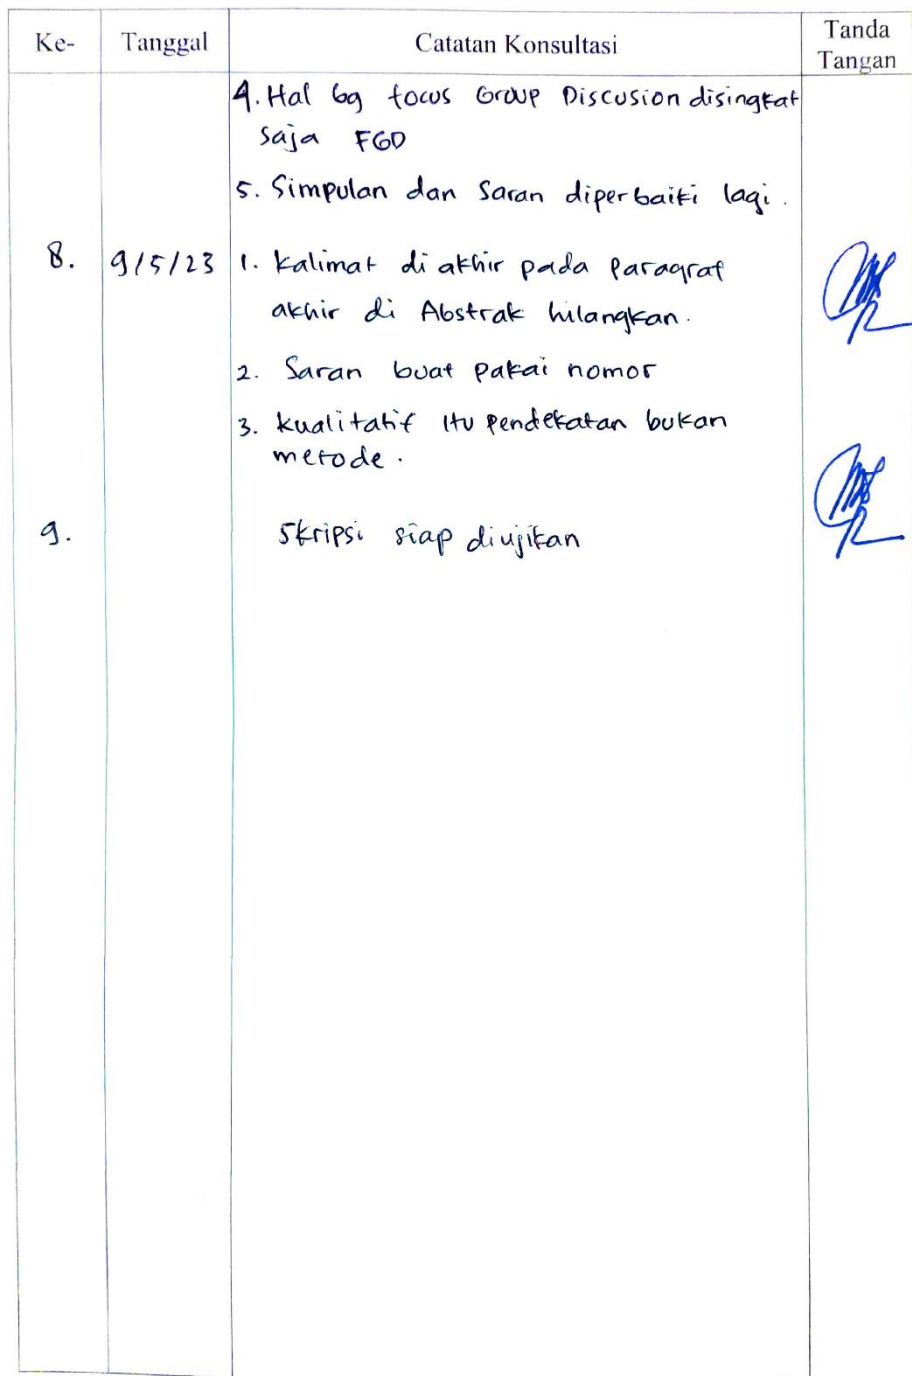 Ke- Tanggal Catatan Konsultasi Tanda Tangan
4. Hal 69 focus Group Discusion disingkat
saja FGD
5. Simpulan dan Saran diperbaiki lagi.
8. 9/5/23 1. kalimat di akhir pada Paragraf
akhir di Abstrak hilangkan.
2. Saran buat pakai nomor
3. kualitatif itu pendekatan bukan
metode.
9. Skripsi siap diujikan